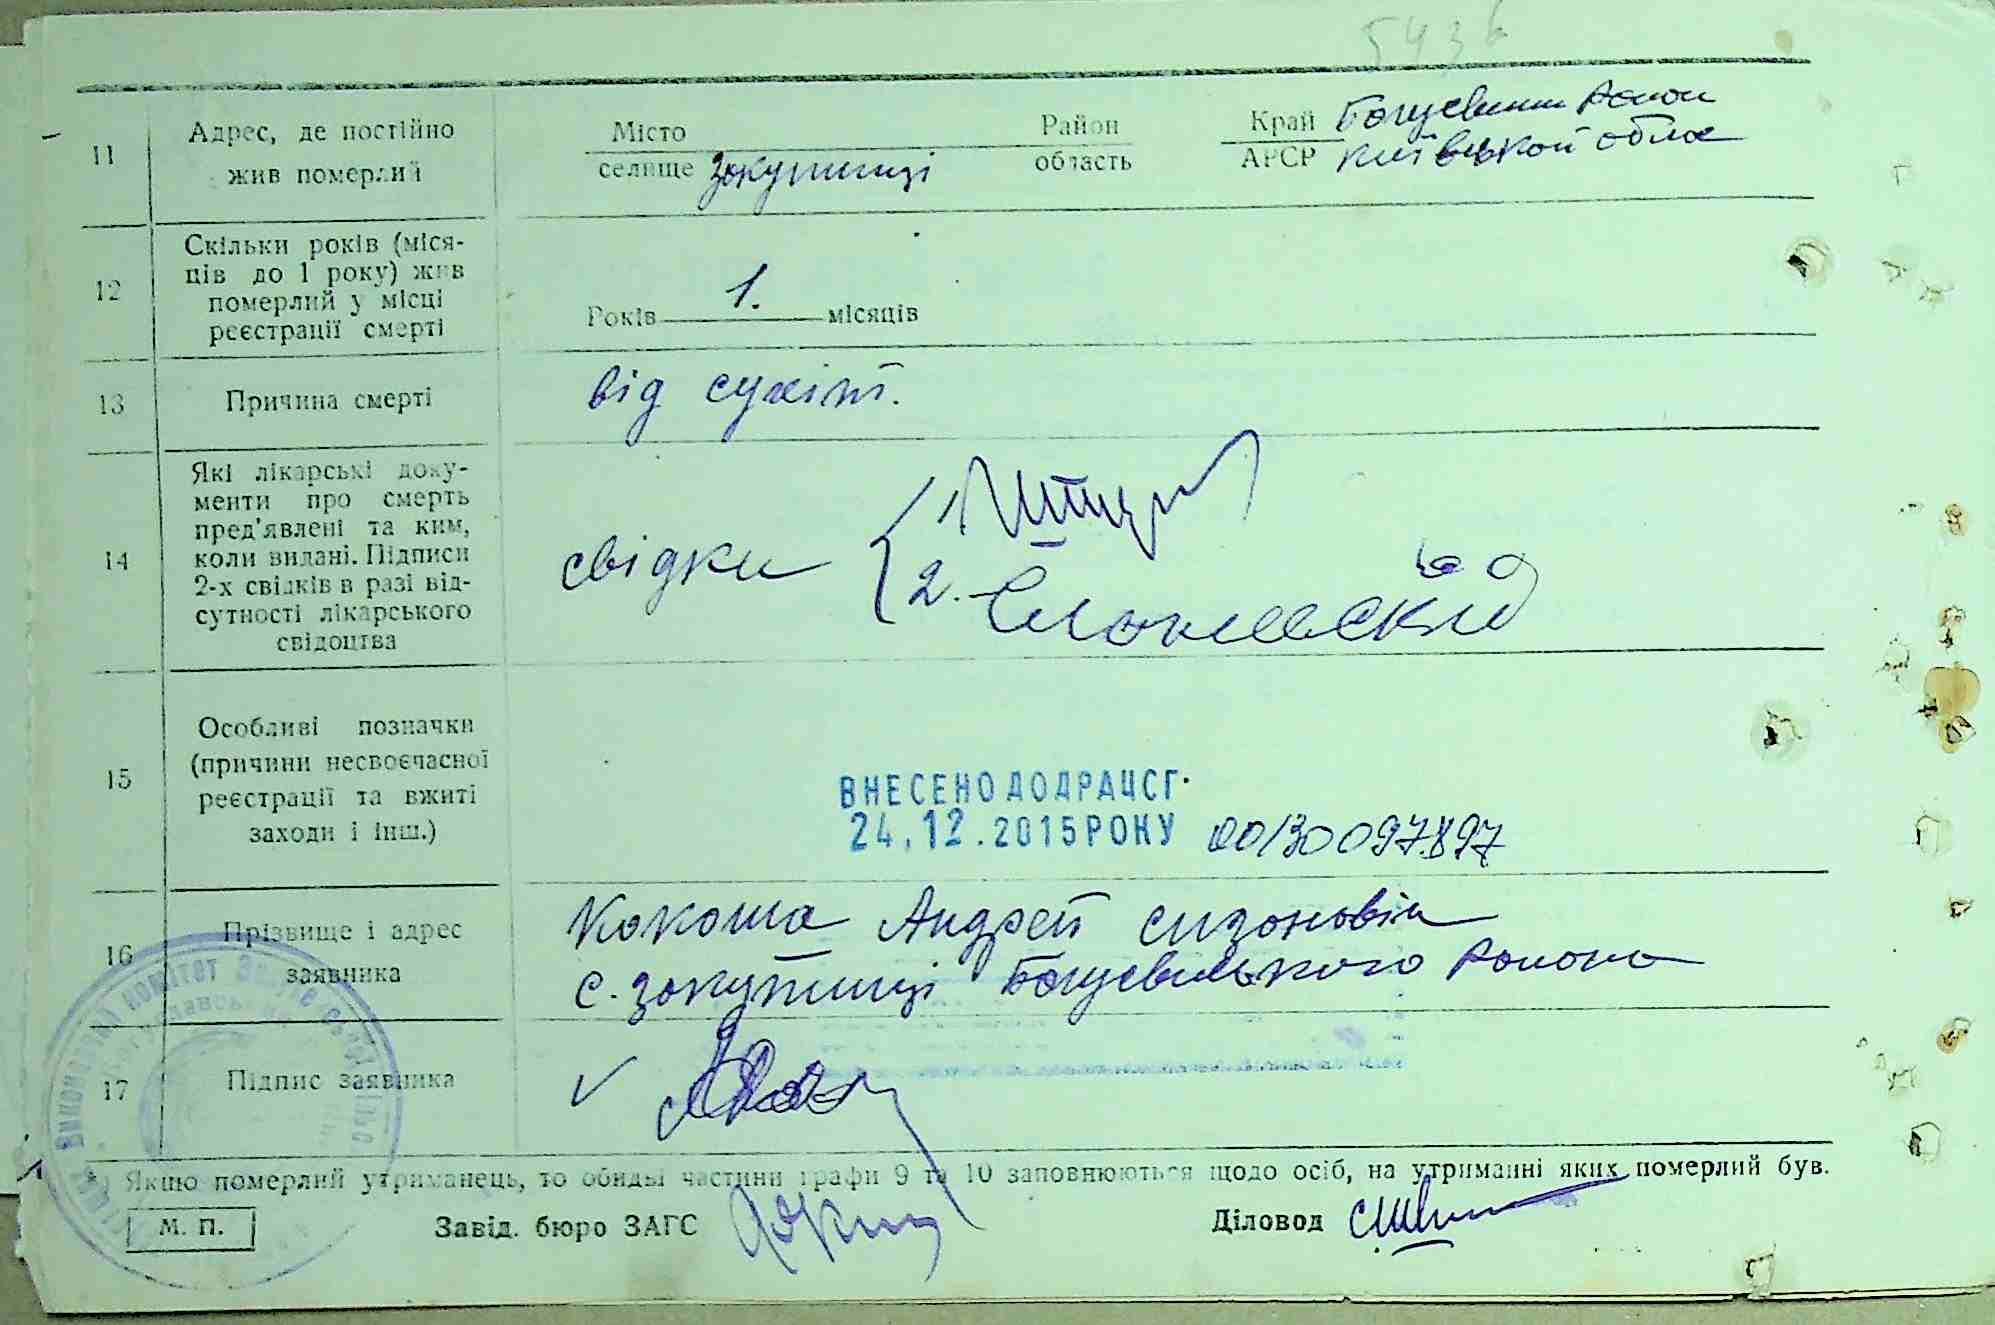 5436
11
Адрес, де постійно
жив померлий
Місто
селище Закутинці
Район
область
Край
АРСР
Богуславський район
київської облас
12
Скільки років (міся-
ців до 1 року) жив
померлий у місці
реєстрації смерті
Років 1. місяців
13
Причина смерті
від сухіт.
14
Які лікарські доку-
менти про смерть
пред'явлені та ким,
коли видані. Підписи
2-х свідків в разі від-
сутності лікарського
свідоцтва
свідки
1
2.
15
Особливі позначки
(причини несвоєчасної
реєстрації та вжиті
заходи і інш.)
ВНЕСЕНО ДО ДРАЦСГ
24.12.2015 РОКУ 00130097897
16
Прізвище і адрес
заявника
Кокоша Андрей Сизонович
с. Закутинці Богуславського района
17
Підпис заявника
Якшо померлий утриманець, то обидві частини графи 9 та 10 заповнюються щодо осіб, на утриманні яких померлий був.
М. П.
Завід. бюро ЗАГС
Діловод
Виконавчий комітет